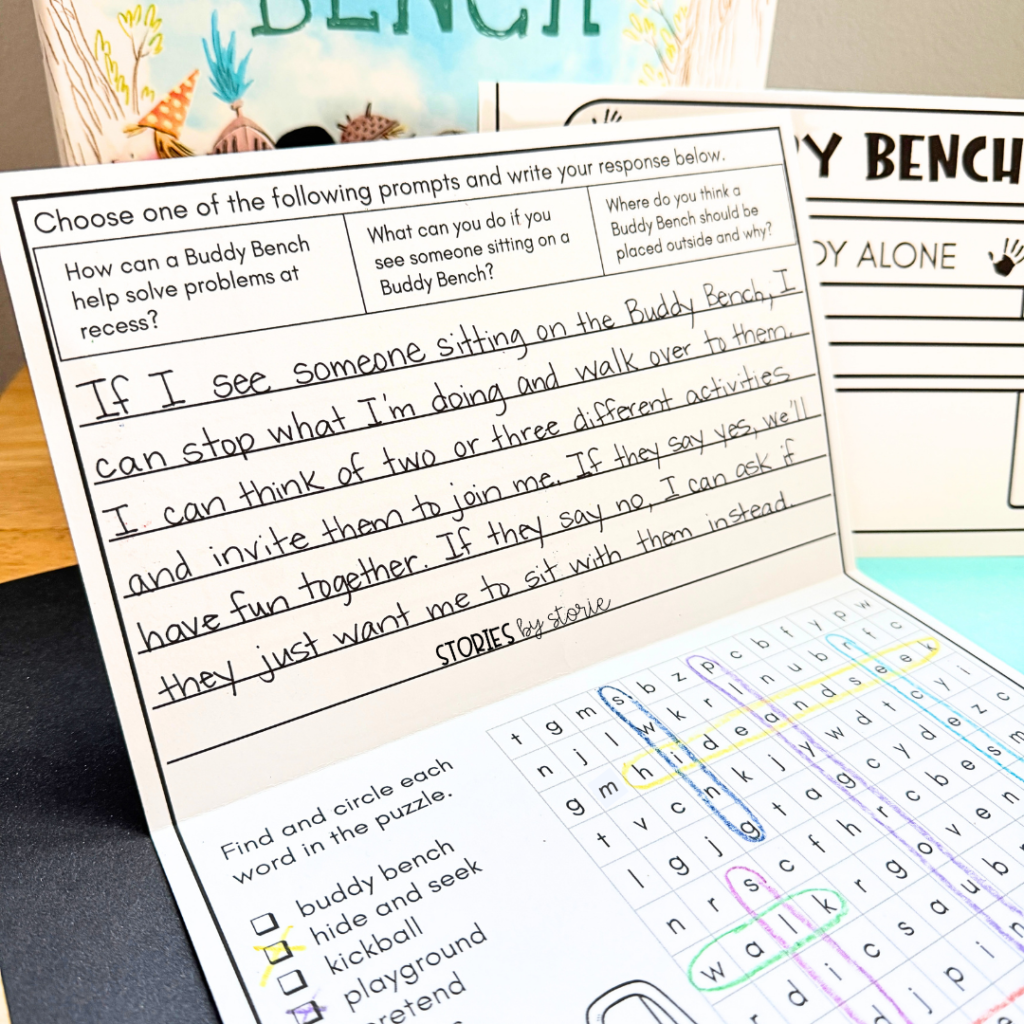 BENCH
Y BENCH
DY ALONE
Choose one of the following prompts and write your response below.
How can a Buddy Bench
help solve problems at
recess?
What can you do if you
see someone sitting on a
Buddy Bench?
Where do you think a
Buddy Bench should be
placed outside and why?
If I see someone sitting on the Buddy Bench, I
can stop what I'm doing and walk over to them.
I can think of two or three different activities
and invite them to join me. If they say yes, we'll
have fun together. If they say no, I can ask if
they just want me to sit with them instead.
STORIES by storie
Find and circle each
word in the puzzle.
buddy bench
hide and seek
kickball
playground
pretend
t g m s b z p c b f y p w
n j l w k r l n u b r f c
g m h i d e a n d s e e k
t v c n k j y w d t c y i
l g j g t a g c y d e z c
n r s c f h r c b e s m
w a l k r g o v e n
r d i c s a u b r
d j p i n